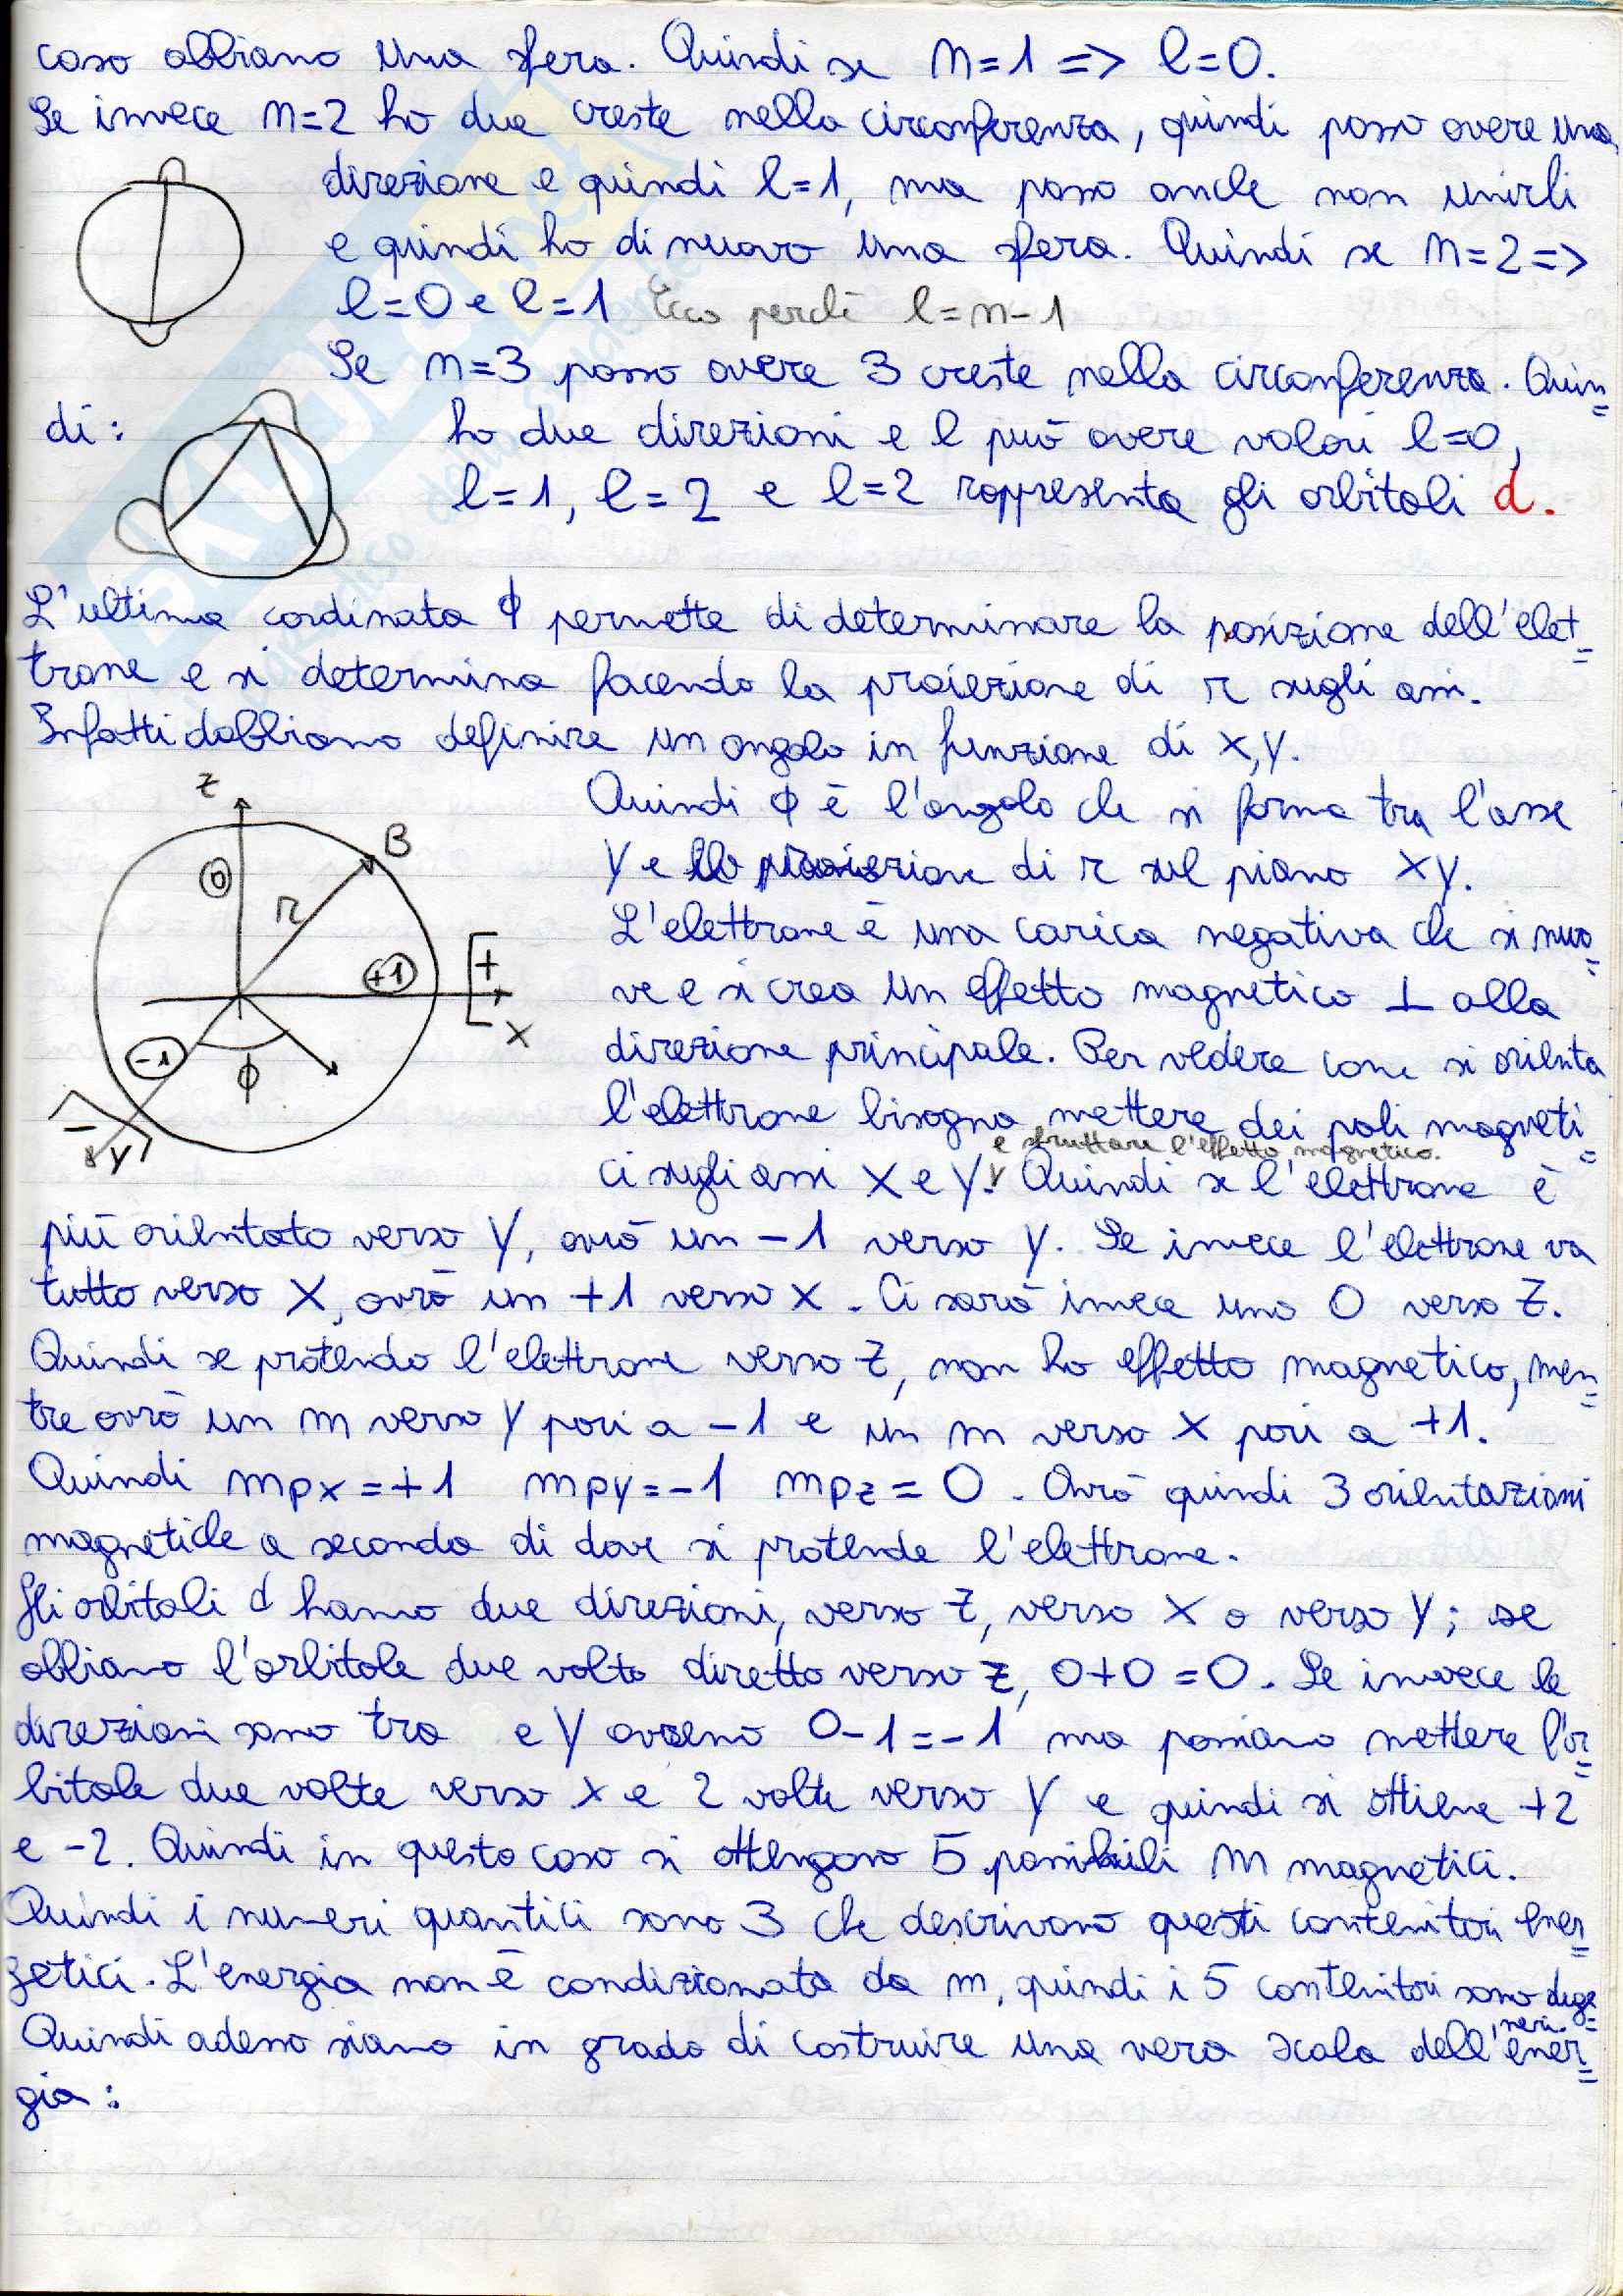 caso abbiamo una sfera. Quindi se n=1 => l=0.
Se invece n=2 ho due creste nella circonferenza, quindi posso avere una
direzione e quindi l=1, ma posso anche non unirli
e quindi ho di nuovo una sfera. Quindi se n=2=>
l=0 e l=1 Ecco perchè l=n-1
Se n=3 posso avere 3 creste nella circonferenza. Quin=
di: ho due direzioni e l può avere valori l=0,
l=1, l=2 e l=2 rappresenta gli orbitali d.
L'ultima cordinata ϕ permette di determinare la posizione dell'elet=
trone e si determina facendo la proiezione di r sugli assi.
Infatti dobbiamo definire un angolo in funzione di x,y.
z
B
0
r
+1
+
x
-1
ϕ
-
y
Quindi ϕ è l'angolo che si forma tra l'asse
y e la proiezione di r sul piano xy.
L'elettrone è una carica negativa che si muo=
ve e si crea un effetto magnetico ⊥ alla
direzione principale. Per vedere come si orienta
l'elettrone bisogna mettere dei poli magneti=
e sfruttare l'effetto magnetico.
ci sugli assi x e y. Quindi se l'elettrone è
più orientato verso y, avrò un -1 verso y. Se invece l'elettrone va
tutto verso x, avrò un +1 verso x. Ci sarà invece uno 0 verso z.
Quindi se protendo l'elettrone verso z, non ho effetto magnetico, men=
tre avrò un m verso y pari a -1 e un m verso x pari a +1.
Quindi mpx=+1 mpy=-1 mpz=0. Avrò quindi 3 orientazioni
magnetiche a seconda di dove si protende l'elettrone.
Gli orbitali d hanno due direzioni, verso z, verso x o verso y; se
abbiamo l'orbitale due volte diretto verso z, 0+0=0. Se invece le
direzioni sono tra e y avremo 0-1=-1 ma possiamo mettere l'or=
bitale due volte verso x e 2 volte verso y e quindi si ottiene +2
e -2. Quindi in questo caso si ottengono 5 possibili m magnetici.
Quindi i numeri quantici sono 3 che descrivono questi contenitori ener=
getici. L'energia non è condizionata da m, quindi i 5 contenitori sono dege=
neri.
Quindi adesso siamo in grado di costruire una vera scala dell'ener=
gia: